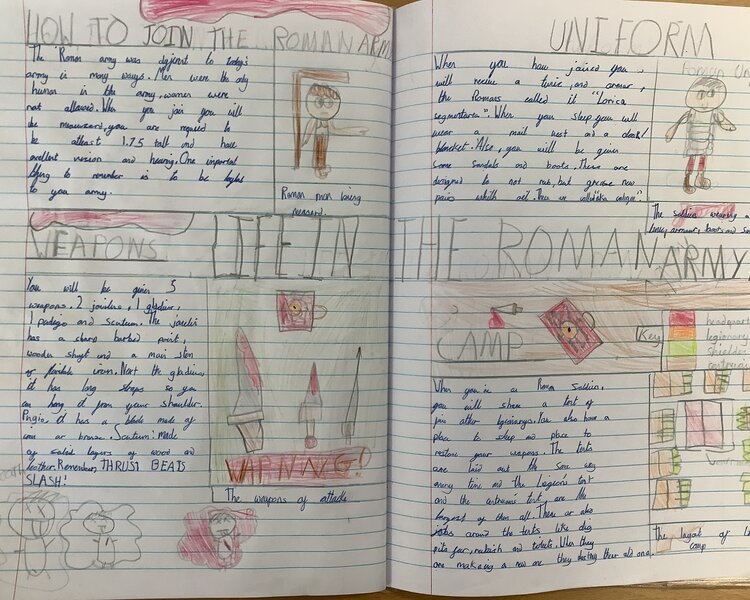 HOW TO JOIN THE ROMAN ARM
The Roman army was dyjirent to today's
army in many ways. Men were the only
human in the army, women were
not allowed. When you join you will
be measured, you are required to
be atleast 1.75 tall and have
excellent vision and hearing. One important
thing to remember is to be loyal
to you army.
Roman men being
mesured.
WEAPONS
You will be given 5
weapons. 2 javelins, 1 gladius,
1 padigio and Scutum. The javelin
has a sharp barbed point,
wooden shaft and a main stem
of flexible iron. Next the gladius
it has long straps so you
can hang it from your shoulder.
Pugio. it has a blade made of
iron or bronze. Scutum. made
of scaled layers of wood and
leather. Remember, THRUST BEATS
SLASH!
WARNNG!
The weapons of attack
LIFE IN THE ROMAN ARMY
UNIFORM
When you have joined you
will receive a tunic, and armour,
the Romans called it "Lorica
segmentarea". When you sleep you will
wear a mail vest and a cloak/
blancket. Also, you will be given
some sandals and boots. These are
designed to not rub, but grease new
pairs with oil.
The soldier wearing
armour, boots and
CAMP
Key
headquart
legionary
When you're a Roman soldier,
you will share a tent of
legionarys. You also have a
place to sleep and place to
restore your weapons. The tents
are laid out the same way
every time and the Legions tent
and the centurions tent are the
largest of them all. There are also
jobs around the tents like dig
pits for, rubbish and toilets. When they
are making a new one they destroy their old one.
The layout of
camp